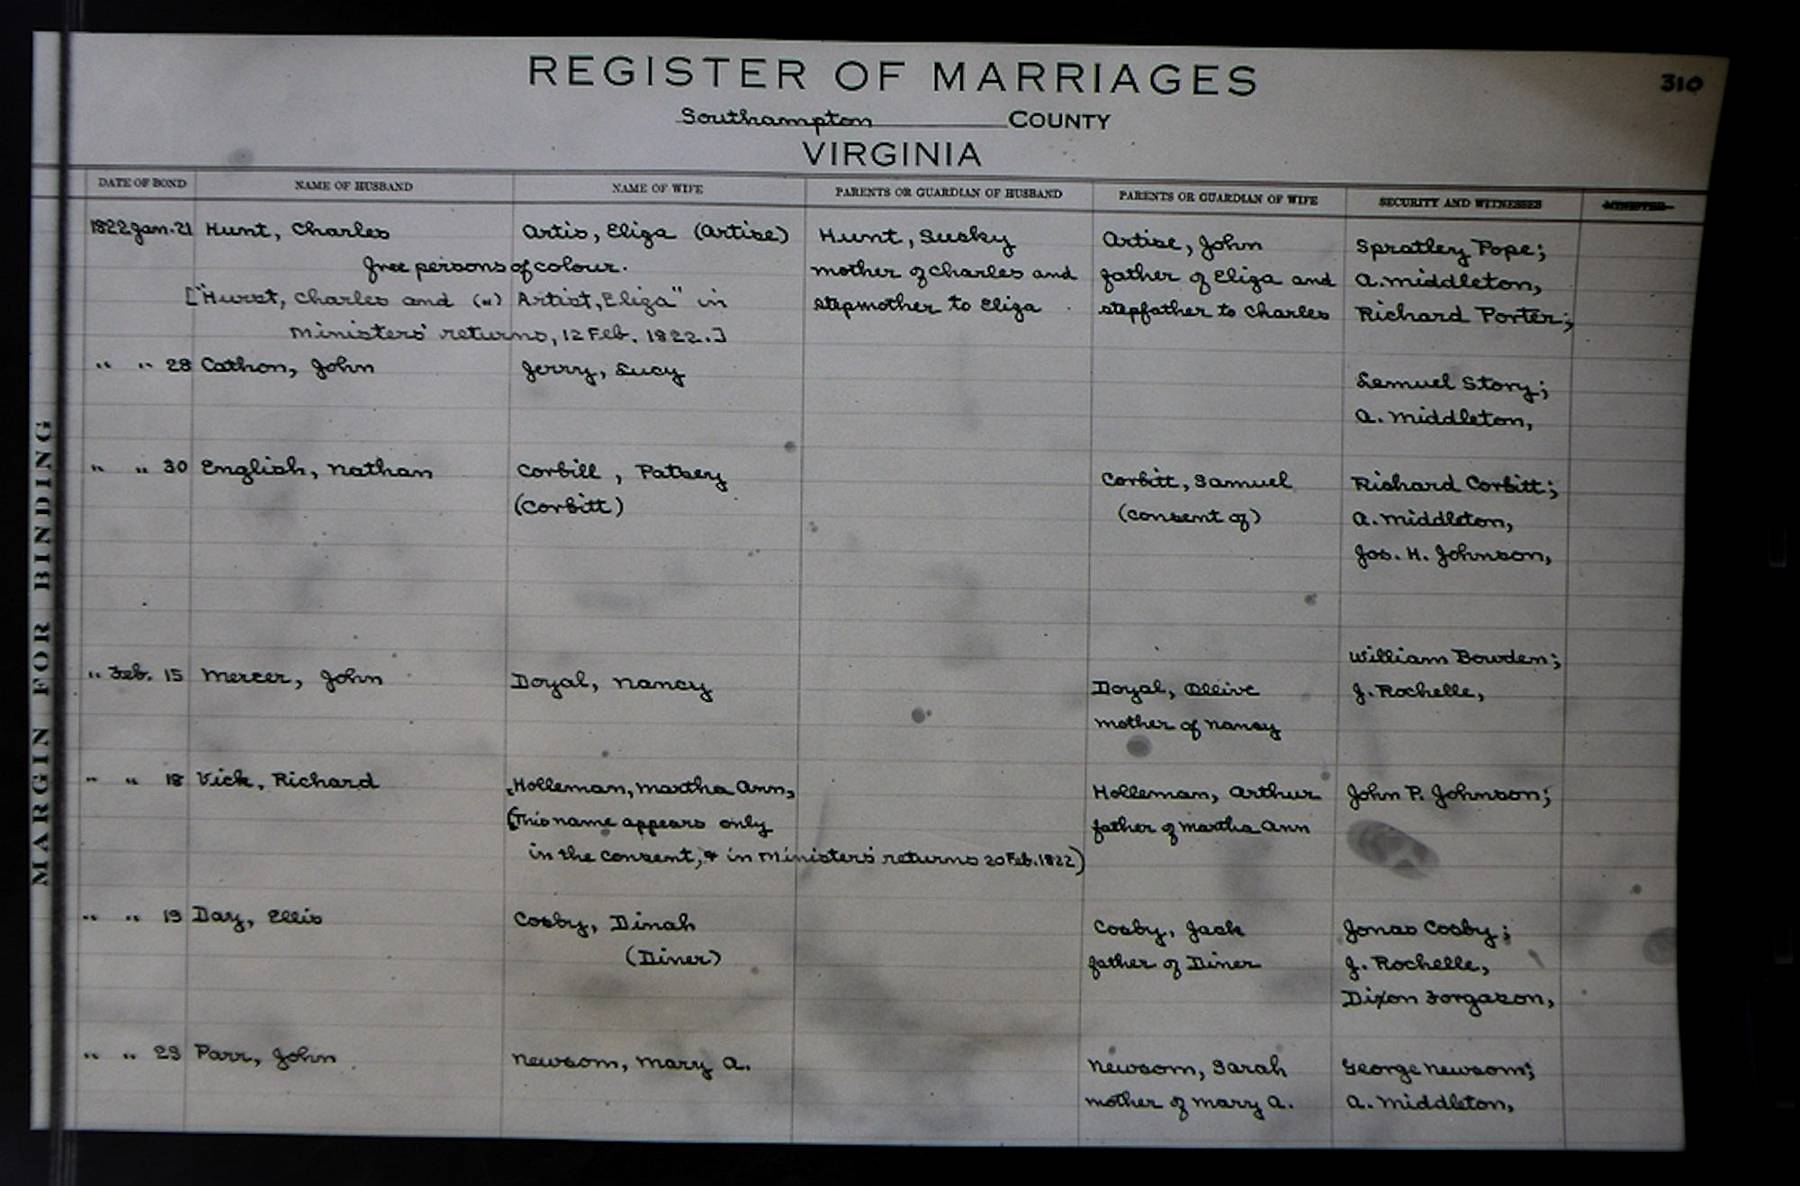 310
REGISTER OF MARRIAGES
Southampton COUNTY
VIRGINIA
DATE OF BOND NAME OF HUSBAND NAME OF WIFE PARENTS OR GUARDIAN OF HUSBAND PARENTS OR GUARDIAN OF WIFE SECURITY AND WITNESSES MINISTER
1822 Jan. 21 Hunt, Charles Artis, Eliza (Artise) Hunt, Susky Artise, John Spratley Pope;
free persons of colour. mother of Charles and father of Eliza and A. Middleton,
["Hurst, Charles and (") Artist, Eliza" in stepmother to Eliza stepfather to Charles Richard Porter;
Ministers' returns, 12 Feb. 1822.]
" " 28 Cathon, John Jerry, Lucy Lemuel Story;
A. Middleton,
" " 30 English, Nathan Corbill, Patsey Corbitt, Samuel Richard Corbitt;
(Corbitt) (consent of) A. Middleton,
Jos. H. Johnson,
William Bowden;
" Feb. 15 Mercer, John Doyal, Nancy Doyal, Ollive J. Rochelle,
mother of Nancy
" " 18 Vick, Richard Holleman, Martha Ann, Holleman, Arthur John P. Johnson;
(This name appears only father of Martha Ann
in the consent, & in Ministers' returns 20 Feb. 1822)
" " 19 Day, Ellis Cosby, Dinah Cosby, Jack Jonas Cosby;
(Diner) father of Diner J. Rochelle,
Dixon Forgason,
" " 23 Parr, John Newsom, Mary A. Newsom, Sarah George Newsom;
mother of Mary A. A. Middleton,
MARGIN FOR BINDING